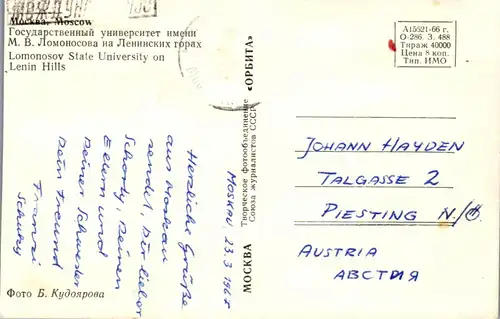 МЕЖДУНАР
Москва. Moscow
Государственный университет имени
М. В. Ломоносова на Ленинских горах
Lomonosov State University on
Lenin Hills
А15521-66 г.
О-286. З. 488
Тираж 40000
Цена 8 коп.
Тип. ИМО
МОСКВА
Творческое фотообъединение
Союза журналистов СССР
«ОРБИТА»
Moskau, 23.3.1968
Herzliche Grüße
aus Moskau
sendet, Dir lieber
Schorty, Deinen
Eltern und
Deiner Schwester
Dein Freund
Franzi
JOHANN HAYDEN
TALGASSE 2
PIESTING N/Ö.
AUSTRIA
АВСТИЯ
Фото Б. Кудоярова